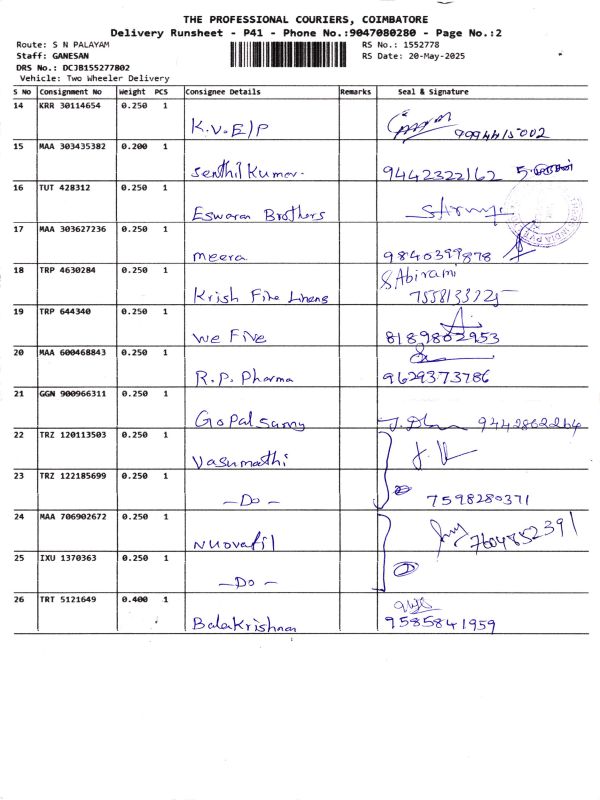 THE PROFESSIONAL COURIERS, COIMBATORE
Delivery Runsheet - P41 - Phone No.:9047080280 - Page No.:2
Route: S N PALAYAM RS No.: 1552778
Staff: GANESAN RS Date: 20-May-2025
DRS No.: DCJB155277802
Vehicle: Two Wheeler Delivery
S No Consignment No Weight PCS Consignee Details Remarks Seal & Signature
14 KRR 30114654 0.250 1
K.V.E/P
15 MAA 303435382 0.200 1
Senthil Kumar. 9442322162
16 TUT 428312 0.250 1
Eswaran Brothers
17 MAA 303627236 0.250 1
meera 9840399878
18 TRP 4630284 0.250 1 S Abirami
Krish Fine Linens
19 TRP 644340 0.250 1
We Five 8189802953
20 MAA 600468843 0.250 1
R.P. Pharma 9629373786
21 GGN 900966311 0.250 1
Gopalsamy
22 TRZ 120113503 0.250 1
Vasumathi
23 TRZ 122185699 0.250 1
-Do- 7598280371
24 MAA 706902672 0.250 1 7604852391
25 IXU 1370363 0.250 1
-Do-
26 TRT 5121649 0.400 1
Balakrishnan 9585841959